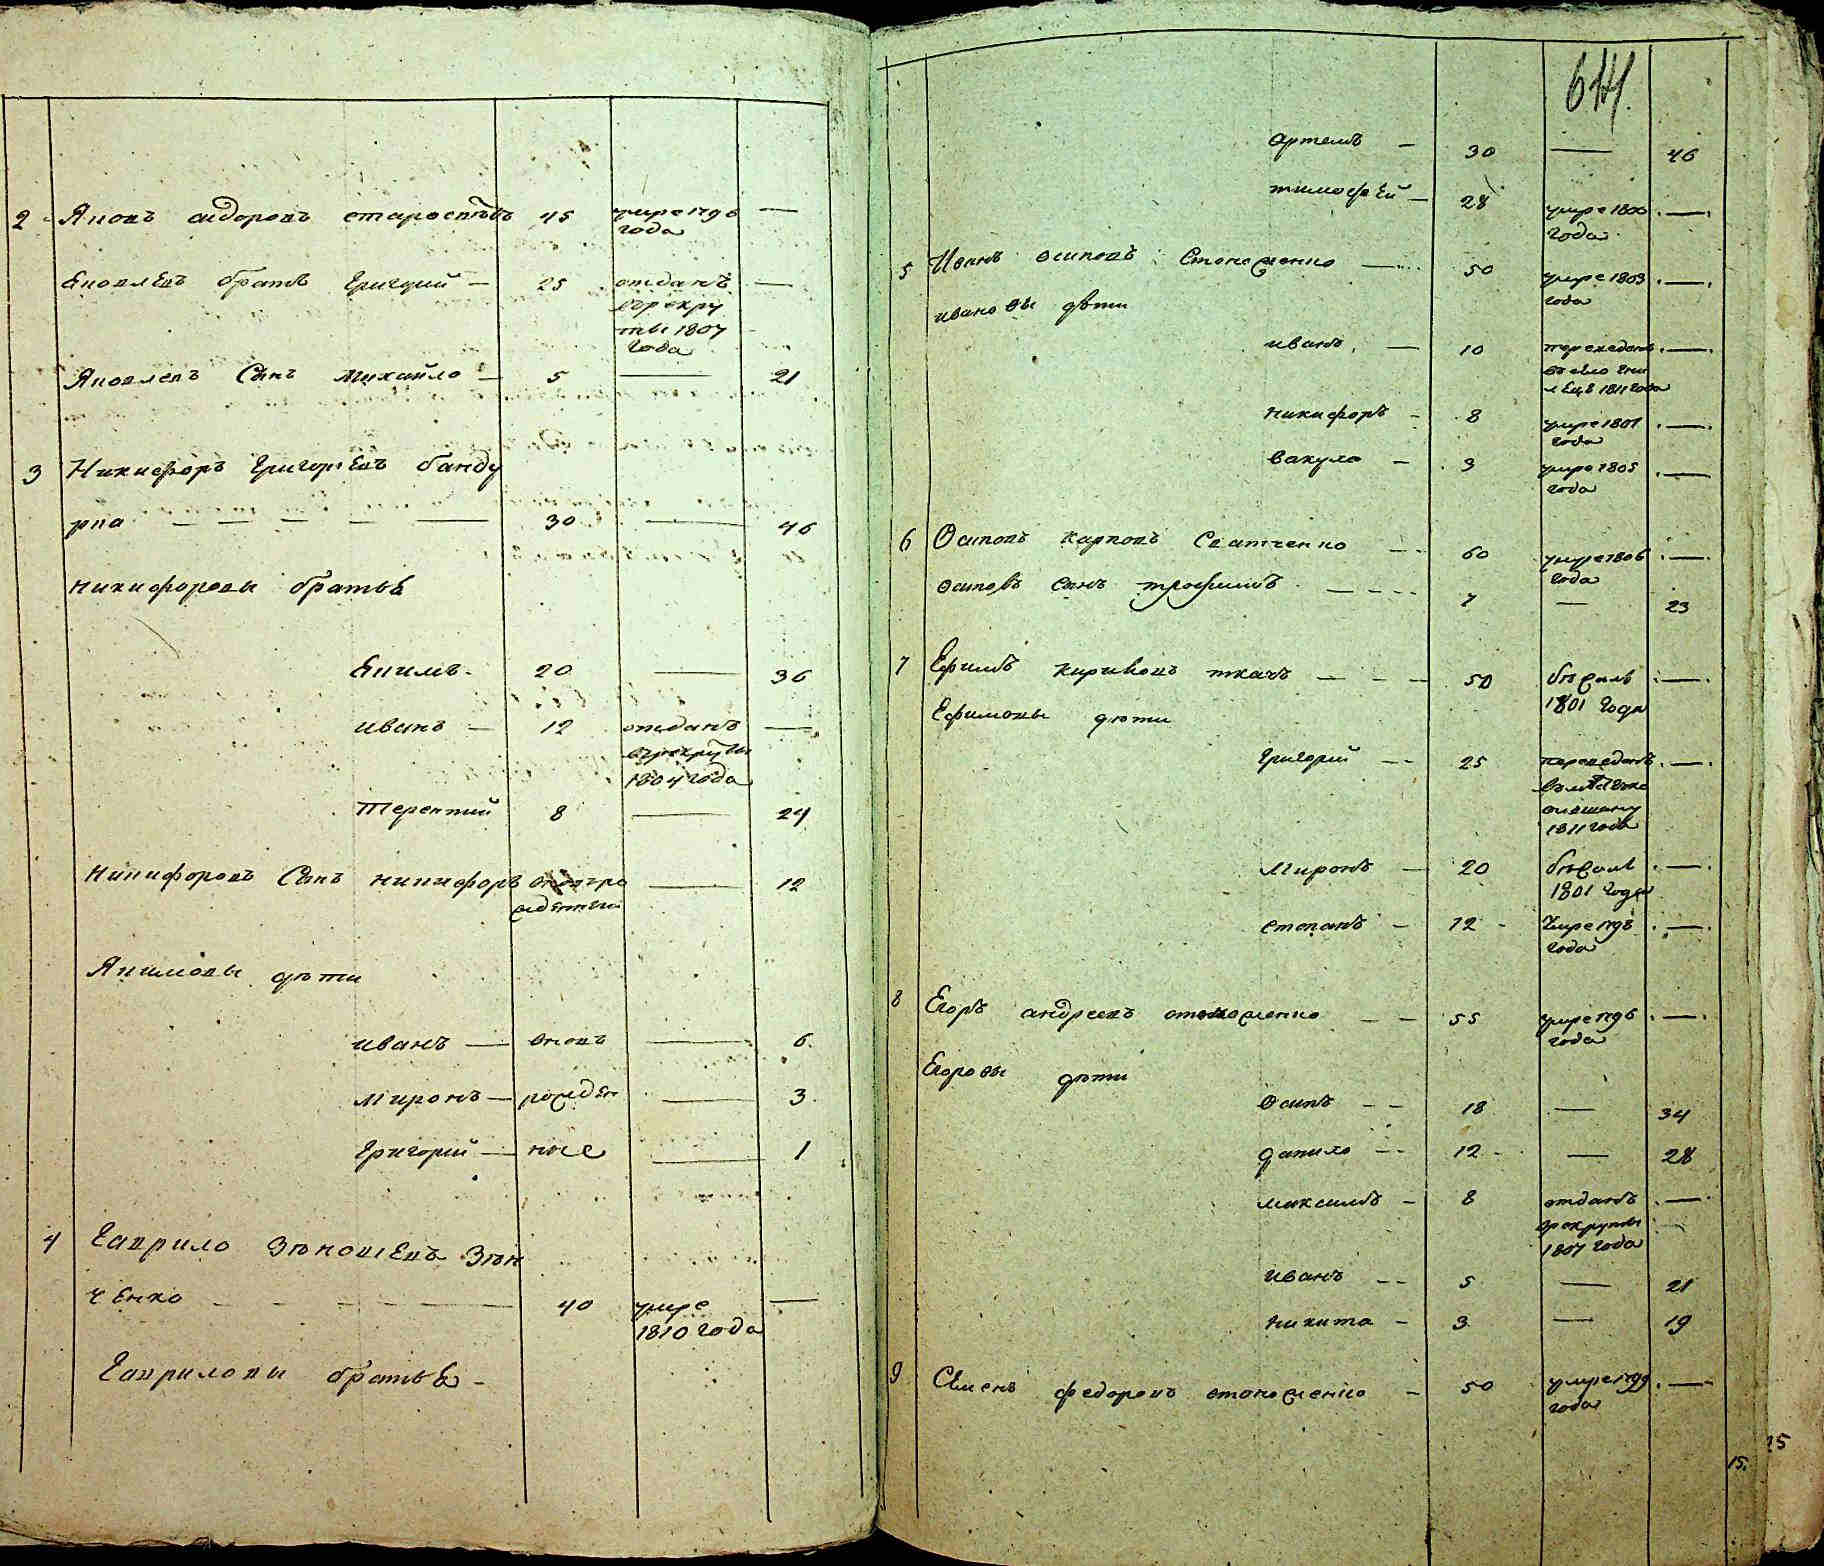 2 Яковъ сидоровъ старостѣвъ 45 умре 1796 —
года
Яковлевъ братъ Григорий — 25 отданъ —
въ рекру
ты 1807
года
Яковлевъ Сынъ Михайло — 5 — 21
3 Никифоръ Григорьевъ банду
рка — — — — — 30 — 46
никифоровы братья
Екимъ 20 — 36
иванъ — 12 отданъ —
въ рекруты
1804 года
Терентий 8 — 24
никифоровъ Сынъ никифоръ вновъро — 12
жденный
Якимовы дѣти
иванъ — вновъ — 6
миронъ — рожден — 3
Григорий — ные — 1
4 Гаврило Зѣновіевъ Зѣн
ченко — — — — — 40 умре —
1810 года
Гавриловы братья —
614.
Артемъ — 30 — 46
тимофѣй — 28 умре 1800 —
года
5 Иванъ осиповъ Стопоженко — 50 умре 1803 —
года
ивановы дѣти
иванъ — 10 переведенъ —
въ село
1811 года
никифоръ — 8 умре 1801 —
года
вакула — 3 умре 1805 —
года
6 Осиповъ карповъ Сватченко — 60 умре 1806 —
года
осиповъ сынъ трофимъ — 7 — 23
7 Ефимъ кириковъ ткачъ — — — 50 бѣжалъ —
1801 года
Ефимовы дѣти
Григорий — 25 переведенъ —
1811 года
Миронъ — 20 бѣжалъ —
1801 года
степанъ — 12 умре 1798 —
года
8 Егоръ андреевъ стопоженко — — 55 умре 1796 —
года
Егоровы дѣти
Осипъ — — 18 — 34
данило — — 12 — 28
максимъ — 8 отданъ —
в рекруты
1807 года
иванъ — — 5 — 21
никита — 3 — 19
9 Семенъ федоровъ стопоженко — 50 умре 1799 —
года
15.
25